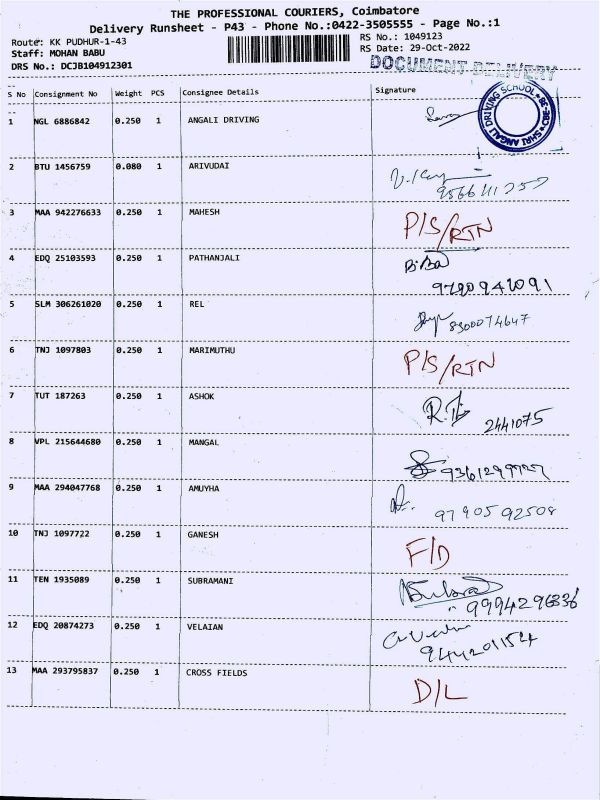 THE PROFESSIONAL COURIERS, Coimbatore
Delivery Runsheet - P43 - Phone No.:0422-3505555 - Page No.:1
Route: KK PUDHUR-1-43
RS No.: 1049123
Staff: MOHAN BABU
RS Date: 29-Oct-2022
DRS No.: DCJB104912301
DOCUMENT DELIVERY
S No Consignment No Weight PCS Consignee Details Signature
1 NGL 6886842 0.250 1 ANGALI DRIVING
SHRI ANGALI DRIVING SCHOOL CBE-38
2 BTU 1456759 0.080 1 ARIVUDAI
3 MAA 942276633 0.250 1 MAHESH P/S/RTN
4 EDQ 25103593 0.250 1 PATHANJALI
5 SLM 306261020 0.250 1 REL 8300074647
6 TNJ 1097803 0.250 1 MARIMUTHU P/S/RTN
7 TUT 187263 0.250 1 ASHOK 2441075
8 VPL 215644680 0.250 1 MANGAL
9 MAA 294047768 0.250 1 AMUYHA 9790592508
10 TNJ 1097722 0.250 1 GANESH F/D
11 TEN 1935089 0.250 1 SUBRAMANI 9994296336
12 EDQ 20874273 0.250 1 VELAIAN 944201154
13 MAA 293795837 0.250 1 CROSS FIELDS D/L